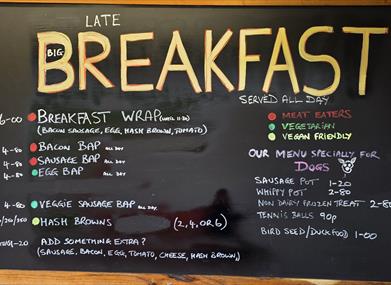 LATE
BIG
BREAKFAST
SERVED ALL DAY
6-00 BREAKFAST WRAP (UNTIL 11-30)
(BACON SAUSAGE, EGG, HASH BROWN, TOMATO)
4-80 BACON BAP ALL DAY
4-80 SAUSAGE BAP ALL DAY
4-80 EGG BAP ALL DAY
4-80 VEGGIE SAUSAGE BAP ALL DAY
HASH BROWNS (2, 4, OR 6)
1-20 ADD SOMETHING EXTRA?
(SAUSAGE, BACON, EGG, TOMATO, CHEESE, HASH BROWN)
MEAT EATERS
VEGETARIAN
VEGAN FRIENDLY
OUR MENU SPECIALLY FOR
DOGS
SAUSAGE POT 1-20
WHIPPY POT 2-80
NON DAIRY FROZEN TREAT 2-80
TENNIS BALLS 90p
BIRD SEED/DUCKFOOD 1-00